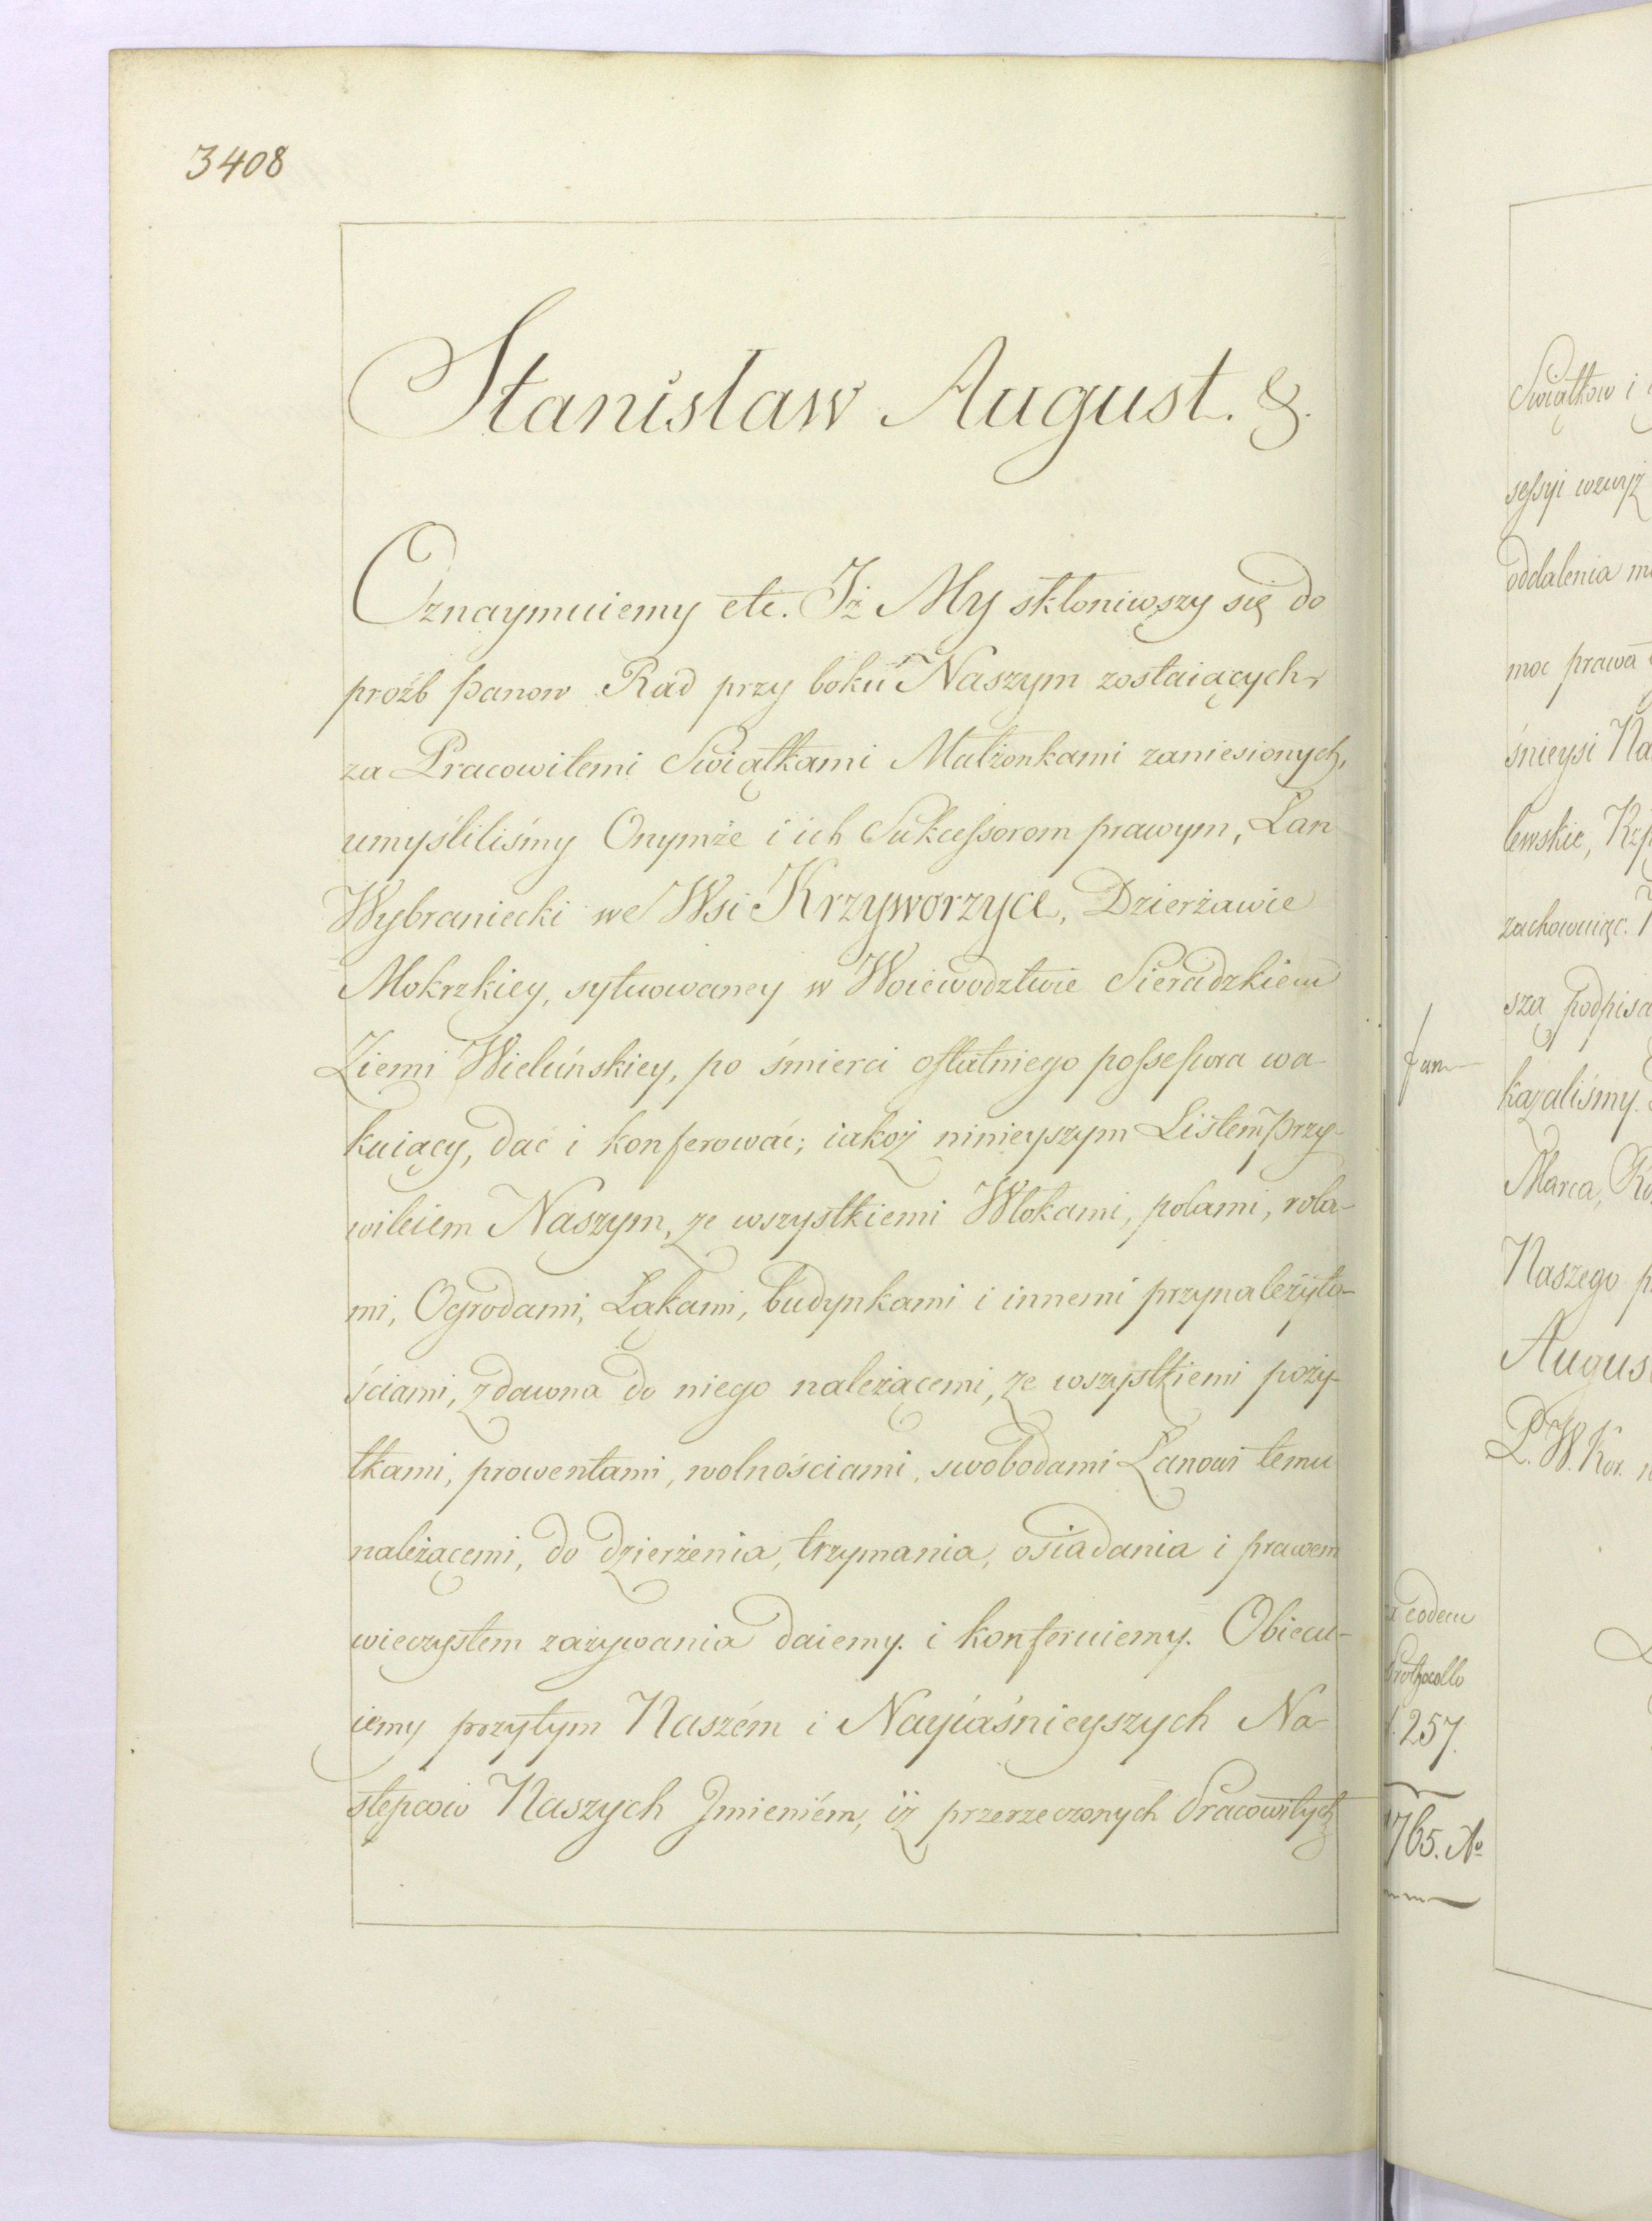 3408
Stanisław August. &.
Oznaymuiemy etc. Iż My skłoniwszy się do
proźb Panow Rad przy boku Naszym zostaiących,
za Pracowitemi Swiątkami Małżonkami zaniesionych,
umyśliliśmy Onymże i ich Sukcessorom prawym, Łan
Wybraniecki we Wsi Krzyworzyce, Dzierżawie
Mokrzkiey, sytuowaney w Woiewodztwie Sieradzkiem
Ziemi Wieluńskiey, po śmierci ostatniego possessora wa-
kuiący, dać i konferować; iakoż ninieyszym Listem Przy-
wileiem Naszym, ze wszystkiemi Włokami, polami, rola-
mi, Ogrodami, Łąkami, budynkami i innemi przynależyto-
ściami, z dawna do niego należącemi, ze wszystkiemi poży-
tkami, prowentami, wolnościami, swobodami Łanowi temu
należącemi, do dzierżenia, trzymania, osiadania i prawem
wieczystem zażywania daiemy i konferuiemy. Obiecu-
iemy przytym Naszém i Nayiaśnieyszych Na-
stępcow Naszych Imieniém, iż przerzeczonych Pracowitych
Swiątkow i
sessyi wzwyż
oddalenia
moc prawa
śnieysi
lewskie,
zachowuiąc.
szą podpisa
kazaliśmy.
Marca,
Naszego
August
P. W. Kor.
eodem
Prothocollo
f. 257.
1765. Ao